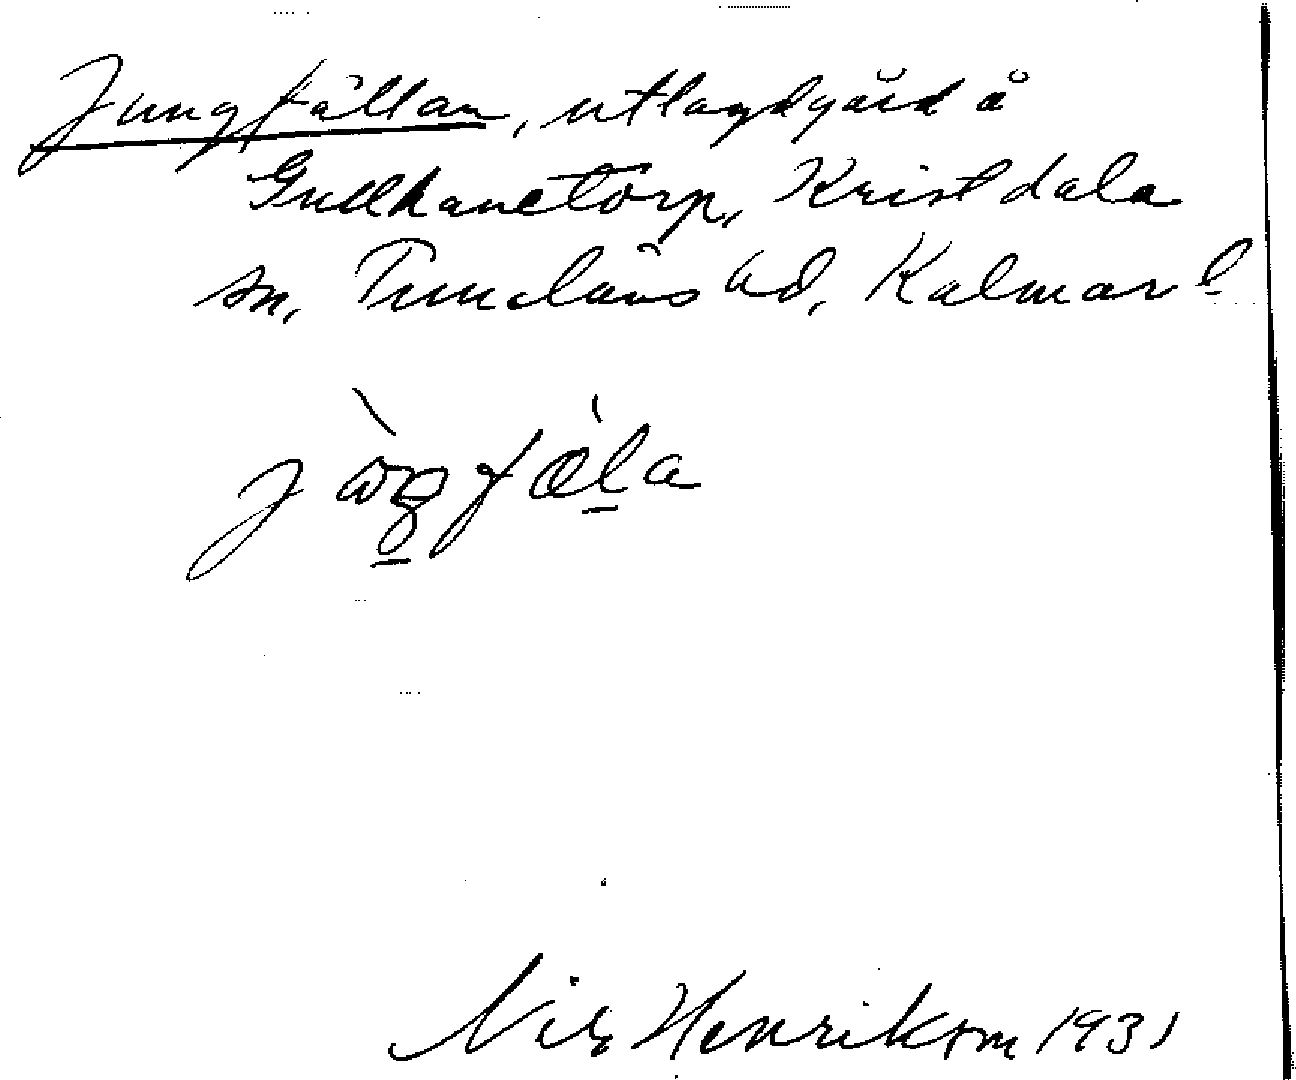 Jungfällan, utlagd gård å
Gullhanetorp, Kristdala
sn, Tunaläns hd, Kalmar l
Nils Henrikson 1931